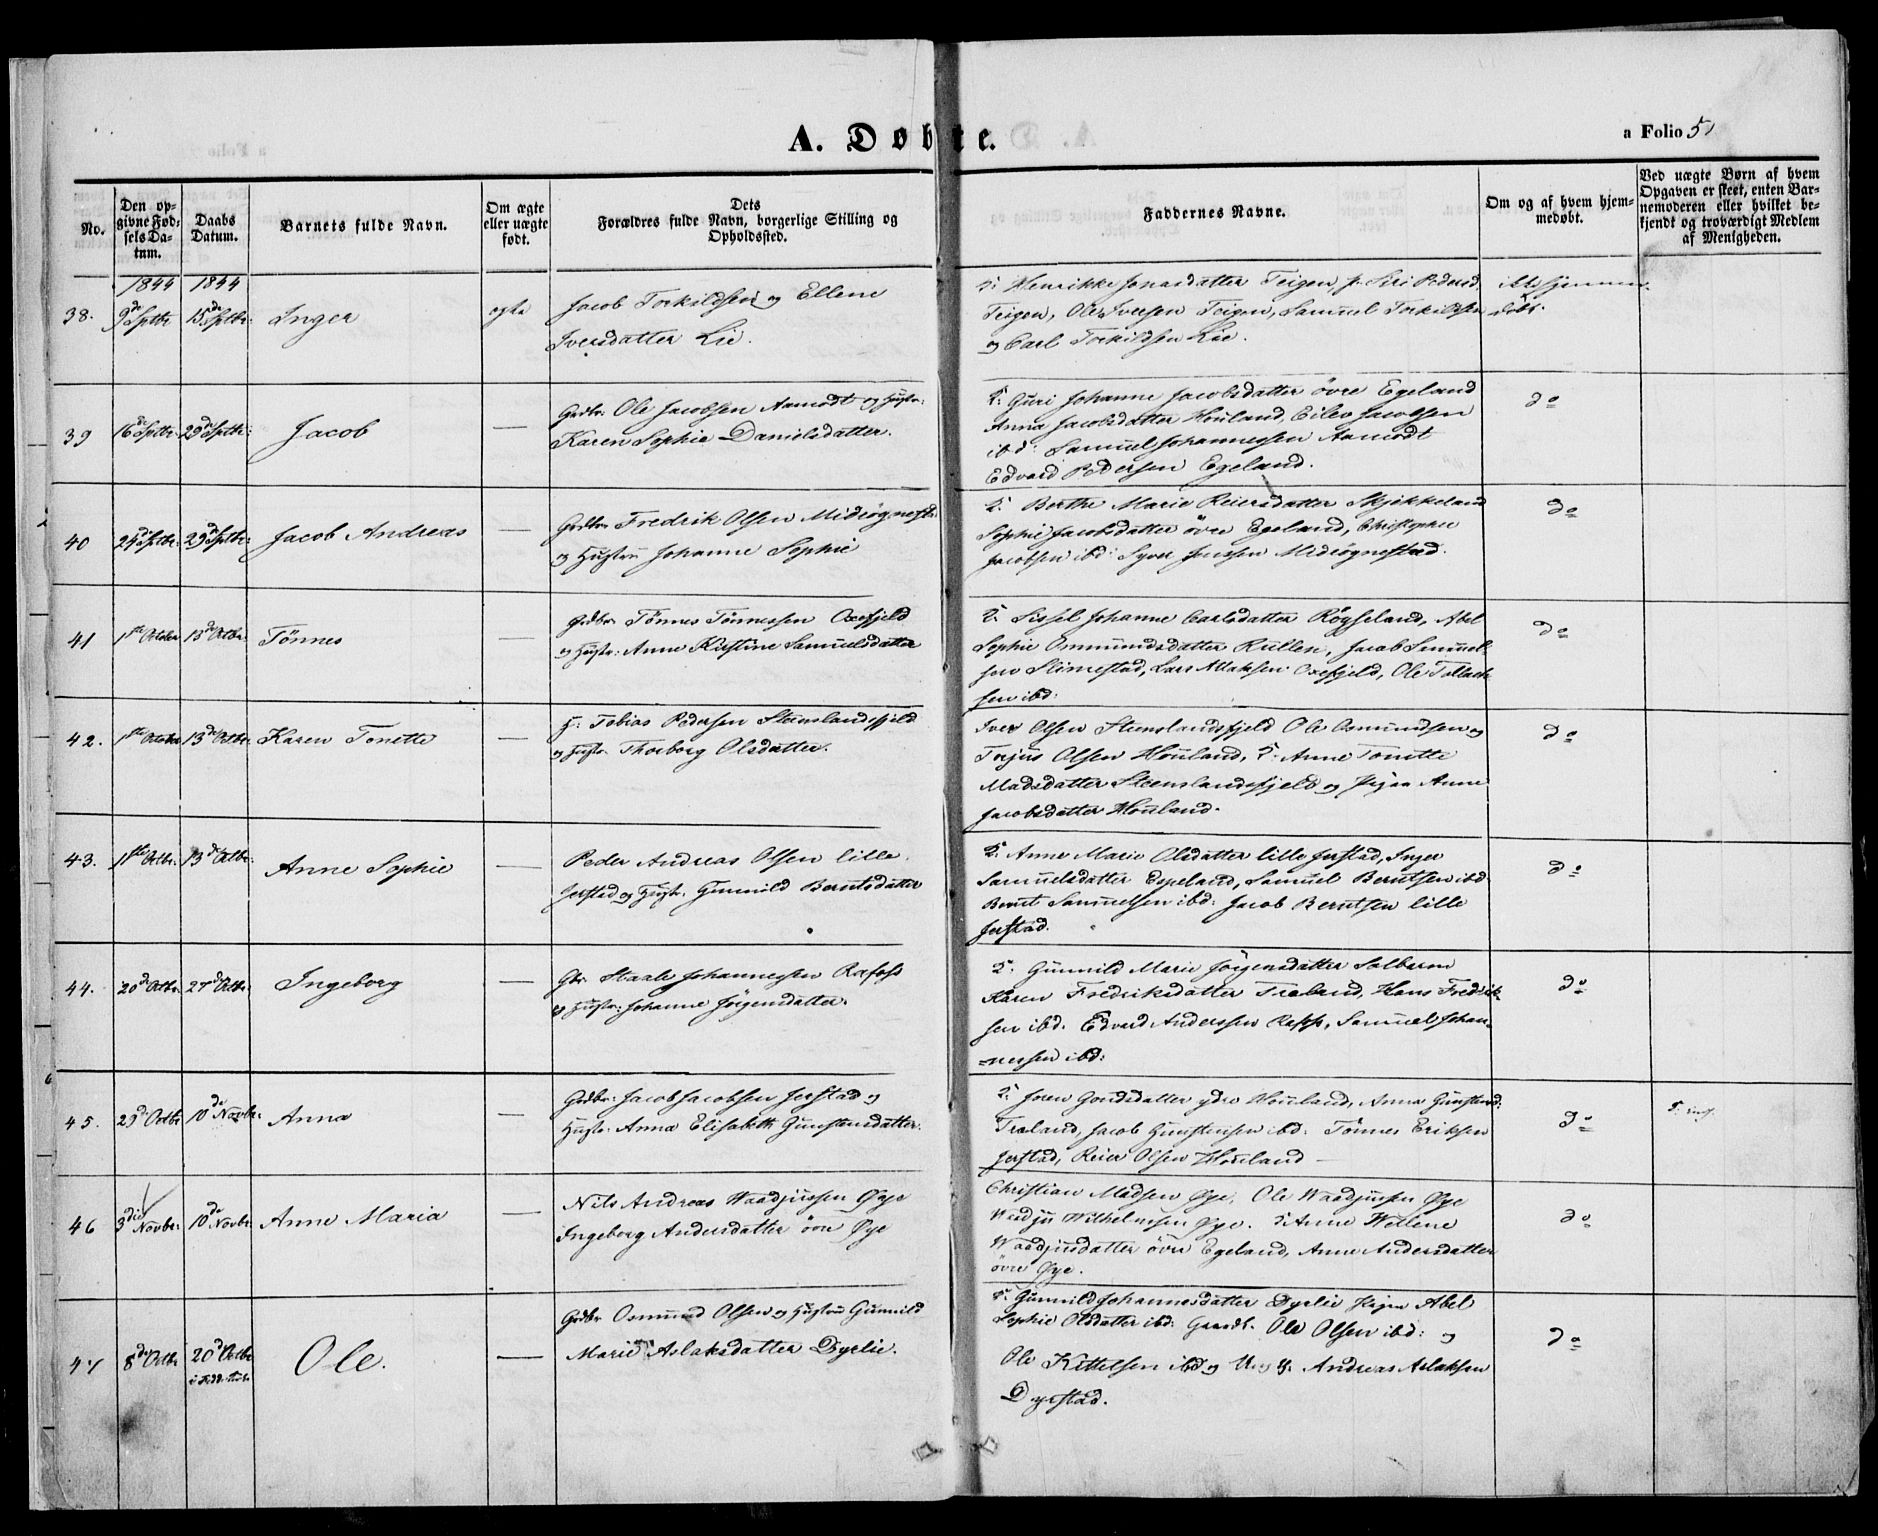 A. Døbte.
a Folio 51
No.
Den opgivne Fødsels Datum.
Daabs Datum.
Barnets fulde Navn.
Om ægte eller uægte født.
Dets Forældres fulde Navn, borgerlige Stilling og Opholdssted.
Faddernes Navne.
Om og af hvem hjemmedøbt.
Ved uægte Børn af hvem Opgaven er skeet, enten Barnemoderen eller hvilket bekjendt og troværdigt Medlem af Menigheden.
1844 1844
38. 9de Sptbr. 15de Sptbr: Inger ægte
Jacob Torkildsen og Ellene
Iversdatter Lie.
Henrikke Jonasdatter Teigen, Siri Pedersd
Teigen, Ole Iversen Teigen, Samuel Torkildsen
og Carl Torkildsen Lie.
ikke hjemme-
døbt.
39 16de Sptbr. 29de Sptbr: Jacob —
Grdbr: Ole Jacobsen Aamodt og Hustr:
Karen Sophie Danielsdatter.
Guri Johanne Jacobsdatter övre Egeland
Anna Jacobsdatter Houland, Eilev Jacobsen
ibd: Samuel Johannessen Aamodt
Edvard Pedersen Egeland.
do
40 24de Sptbr: 29de Sptbr: Jacob Andreas —
Grdbr: Fredrik Olsen Midrögnestd:
og Hustr: Johanne Sophie
Berthe Marie Reiersdatter Skjekkeland
Sophie Jacobsdatter övre Egeland, Christopher
Jacobsen ibd: Syver Jenssen Midrögnestad.
do
41 1ste October 13de Octbr: Tönnes —
Grdbr: Tönnes Tönnessen Oxefjeld
og Hustr: Anne Kirstine Samuelsdatter
Sissel Johanne Carlsdatter Rögseland, Abel
Sophie Ommundsdatter Rullen, Jacob Samuel-
sen Slimestad, Lars Allaksen Oxefjeld, Ole Tallack
sen ibd:
do
42. 1ste October 13de Octbr. Karen Tonette —
Tobias Pedersen Steenslandsfjeld
og Hustr: Thorborg Olsdatter.
Iver Olsen Steenslandsfjeld Ole Osmundsen og
Terjus Olsen Houland, Anne Tonette
Madsdatter Steenslandsfjeld og Pigen Anne
Jacobsdatter Houland.
do
43. 1ste Octbr: 13de Octbr: Anne Sophie —
Peder Andreas Olsen lille
Jerstad og Hustr. Gunnild Berntsdatter
Anne Marie Olsdatter lille Jerstad, Inger
Samuelsdatter Egeland, Samuel Berntsen ibd.
Bernt Samuelsen ibd: Jacob Berntsen lille
Jerstad.
do
44. 20de Octbr. 27de Octbr: Ingeborg —
Gbr: Staale Johannessen Rafoss
og Hustr: Johanne Jörgensdatter.
Gunnild Marie Jörgensdatter Solbarm
Karen Fredriksdatter Traland, Hans Fredrik-
sen ibd. Edvard Anderssen Rapp, Samuel Johan-
=nessen ibd:
do
45. 29de Octbr 10de Novbr: Anna —
Grdbr: Jacob Jacobsen Jerstad og
Hustr: Anna Elisabeth Gunstensdatter.
Joren Gondsdatter ydre Houland, Anna Gunstensd:
Traland, Jacob Gunstensen ibd: Tönnes Eriksen
Jerstad, Reier Olsen Houland —
do
46 3die Novbr: 10de Novbr: Anne Maria —
Nils Andreas Waadjussen Øye
Ingeborg Andersdatter övre Øye
Christian Madsen Øye, Ole Waadjussen Øye
Waadju Wilhelmsen Øye. Anne Wellene
Waadjusdatter övre Egeland, Anne Andersdatter
övre Øye.
do
47 8de Octbr 20de Octbr Ole. —
Grdbr: Osmund Olsen og Hustru Gunnild
Marie Aslaksdatter Dyrlie.
Gunnild Johannesdatter Dyrlie Pigen Abel
Sophie Olsdatter ibd: Gaardb. Ole Olsen ibd: og
Ole Kittelsen ibd og Ungk. Andreas Aslaksen
Dyrstad.
do